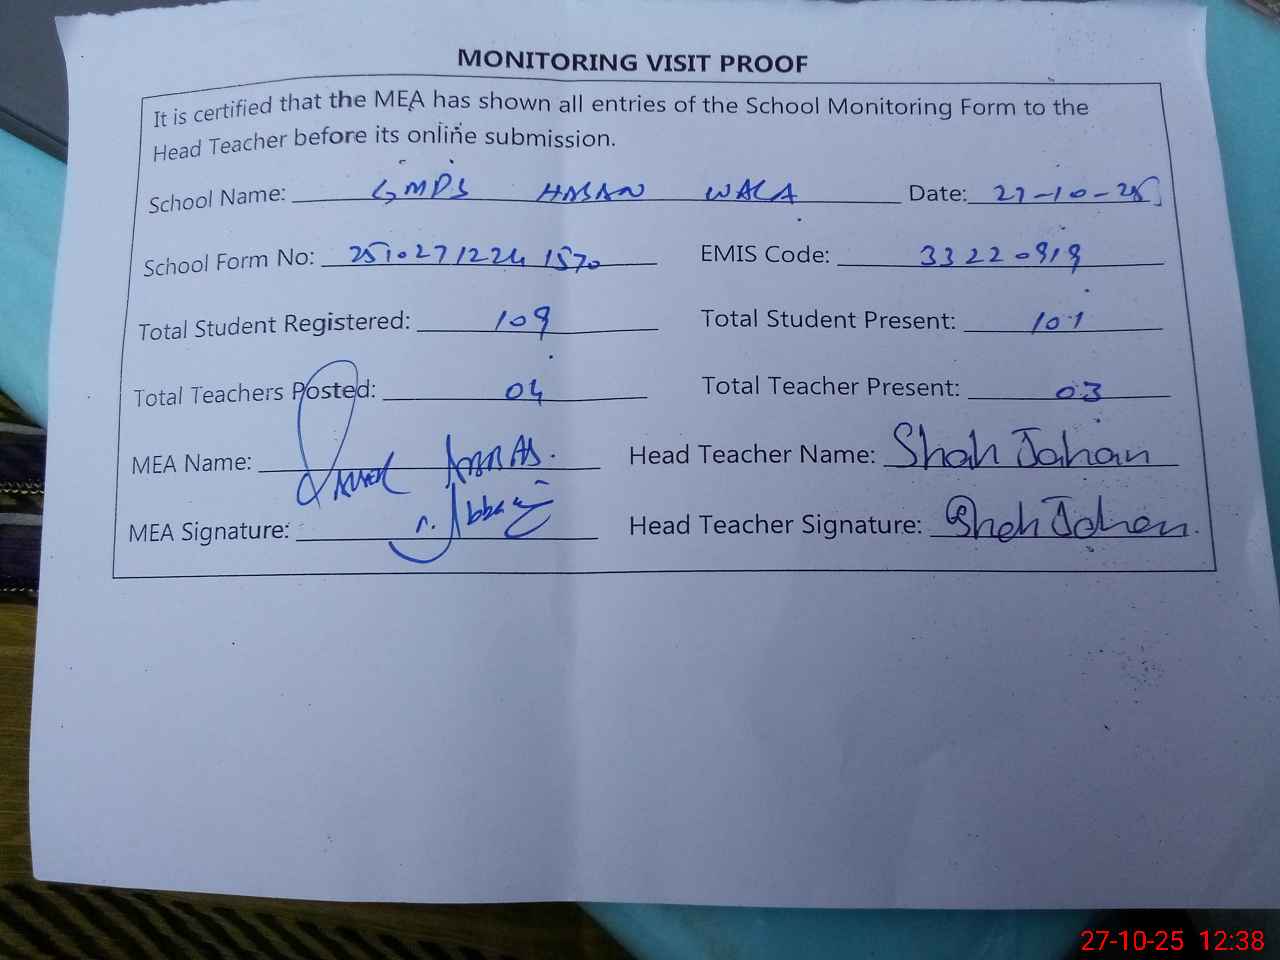 MONITORING VISIT PROOF
It is certified that the MEA has shown all entries of the School Monitoring Form to the
Head Teacher before its online submission.
School Name: GMPS HASAN WALA Date: 27-10-25
School Form No: 25102712241570 EMIS Code: 33220919
Total Student Registered: 109 Total Student Present: 101
Total Teachers Posted: 04 Total Teacher Present: 03
MEA Name: ABBAS. Head Teacher Name: Shah Jahan
MEA Signature: Head Teacher Signature: Shah Jahan.
27-10-25 12:38